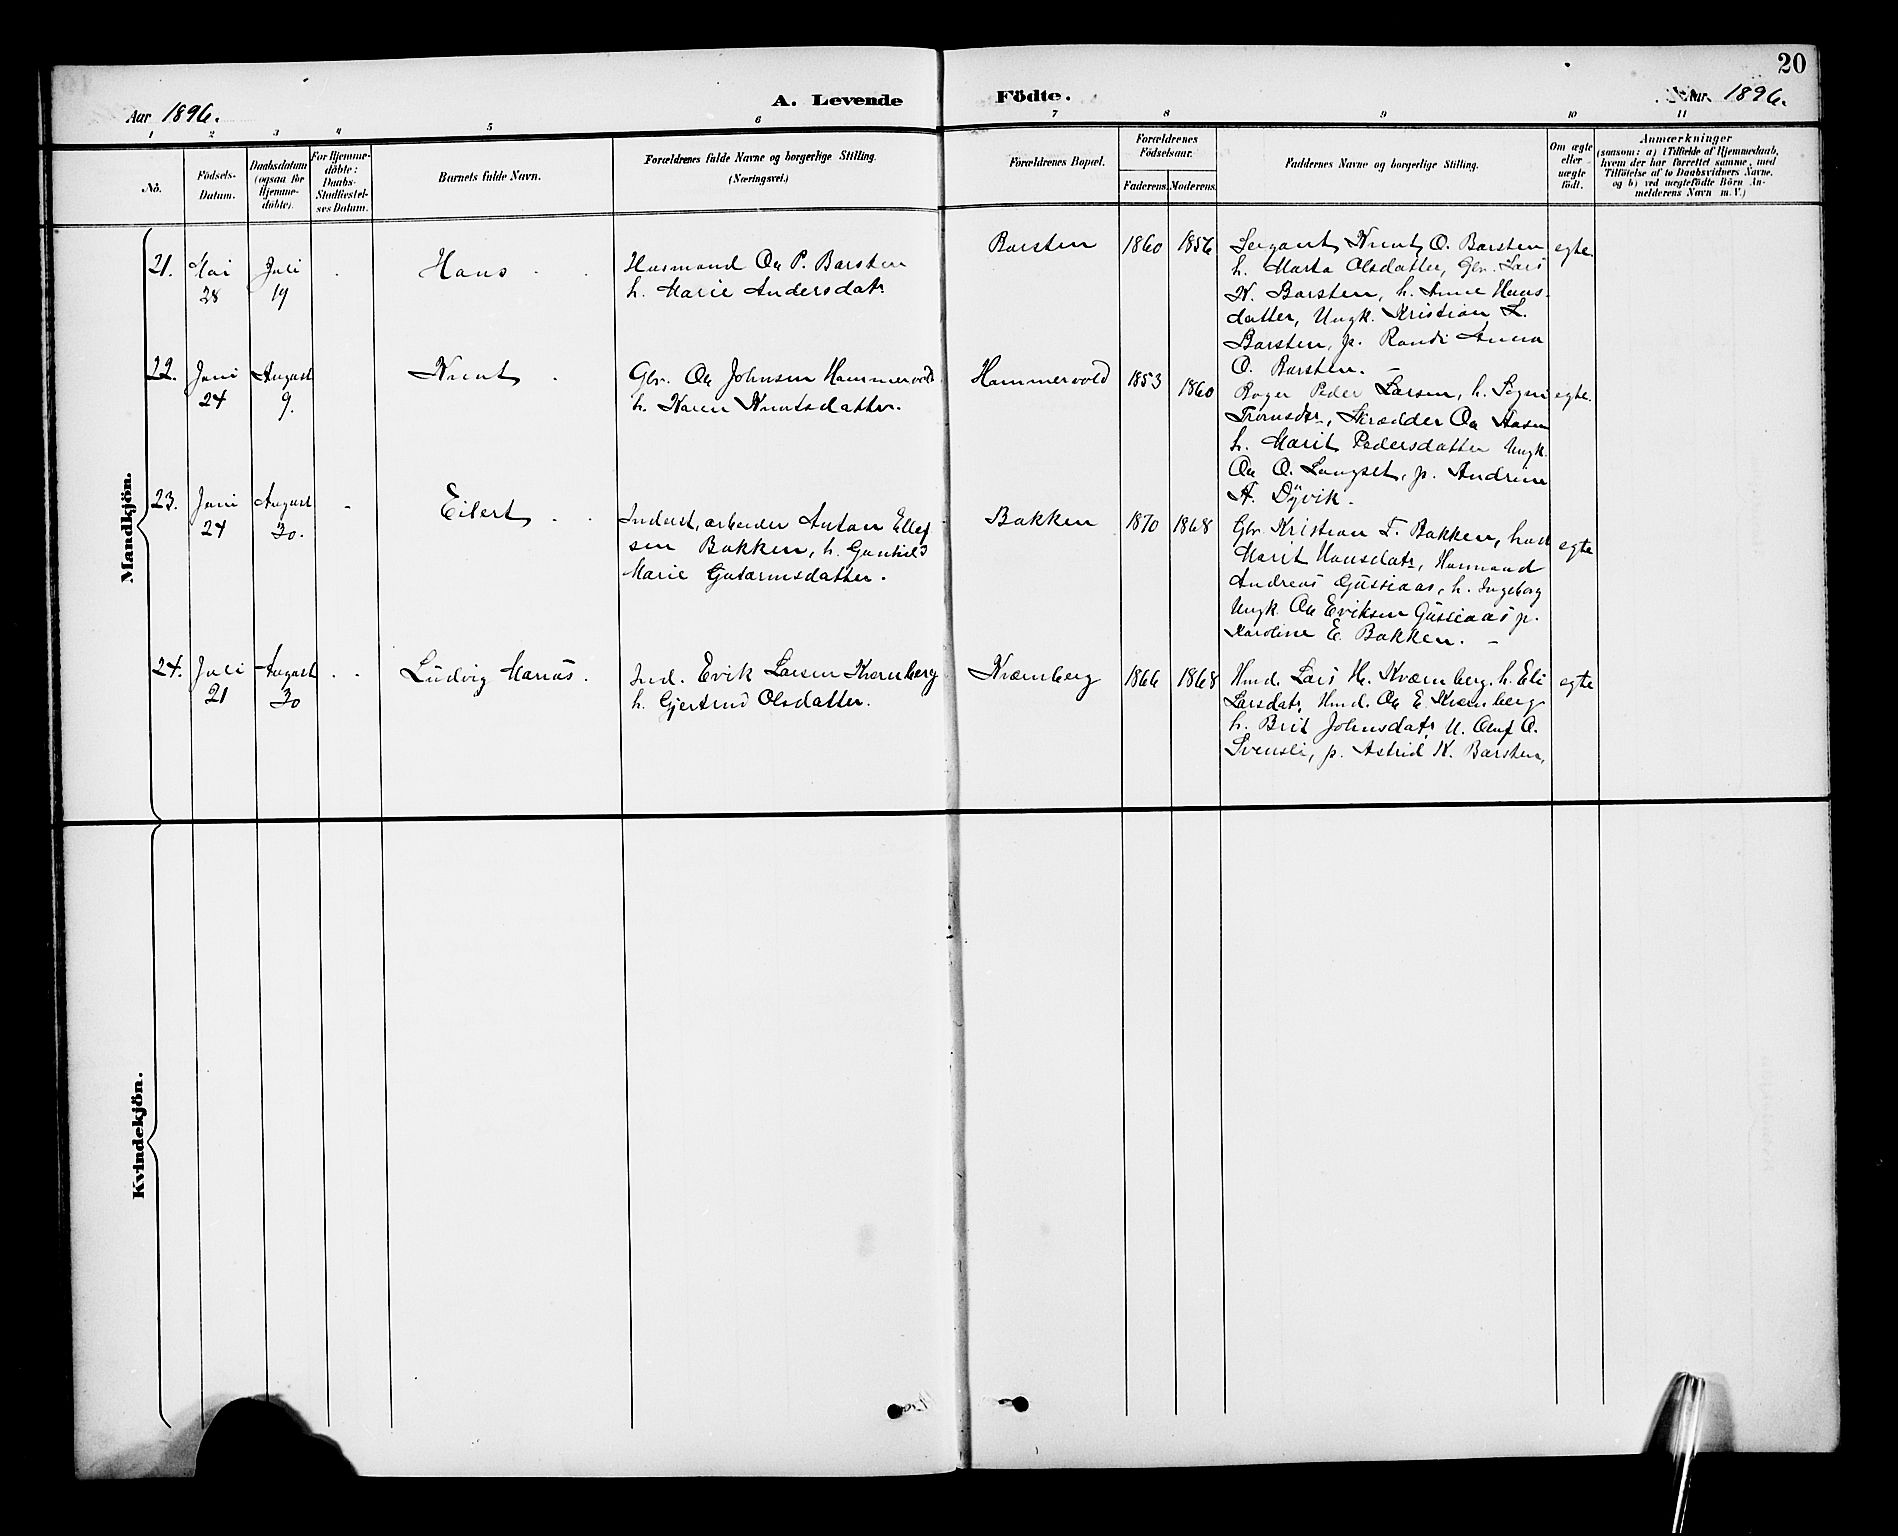 20
Aar 1896.
A. Levende Födte.
Aar 1896.
1 2 3 4 5 6 7 8 9 10 11
No.
Födsels-
Datum.
Daabsdatum
(ogsaa for
Hjemme-
döbte).
For Hjemme-
döbte:
Daabs-
Stadfæstel-
ses Datum.
Barnets fulde Navn.
Forældrenes fulde Navne og borgerlige Stilling.
(Næringsvei.)
Forældrenes Bopæl.
Forældrenes
Födselsaar.
Faderens. Moderens.
Faddernes Navne og borgerlige Stilling.
Om ægte
eller
uægte
födt.
Anmærkninger
(saasom: a) i Tilfælde af Hjemmedaab,
hvem der har forrettet samme, med
Tilföielse af to Daabsvidners Navne,
og b) ved uægtefödte Börn An-
melderens Navn m. V.)
Mandkjön.
21.
Mai
28
Juli
19
Hans
Husmand Ole P. Barsten
h. Marie Andersdatr
Barsten
1860
1856
Sergant Knut O. Barsten
h. Marta Olsdatter, Gbr. Lars
K. Barsten, h. Anne Hans-
datter, Ungk. Kristian L.
Barsten, p. Randi Anna
O. Barsten.
egte.
22.
Juni
24
August
9.
Knut
Gbr. Ole Johnsen Hammervold
h. Karen Knutsdatter.
Hammervold
1853
1860
Peder Larsen, h.
Skrædder Ole
h. Marit Pedersdatter Ungk.
Ole O. Langset, p. Andrine
A. Dyvik.
egte.
23.
Juni
24
August
30.
Eilert
Indust. arbeider Anton Ellef
sen Bakken, h. Gunhild
Marie
Bakken
1870
1868
Gbr. Kristian T. Bakken, h
Marit Hansdatr, Husmand
Andreas Gussiaas, h. Ingeborg
Ungk. Ole Eriksen Gussiaas p.
Karoline E. Bakken.
egte
24.
Juli
21
August
30
Ludvig Marius.
Ind. Erik Larsen Kvernberg
h. Gjertrud Olsdatter.
Kværnberg
1866
1868
Hmd. Lars H. Kværnberg. h. Eli
Larsdatr, Hmd. Ole E. Kvernberg
h. Brit Johnsdatr U. Oluf O.
Svensli, p. Astrid K. Barsten,
egte
Kvindekjön.